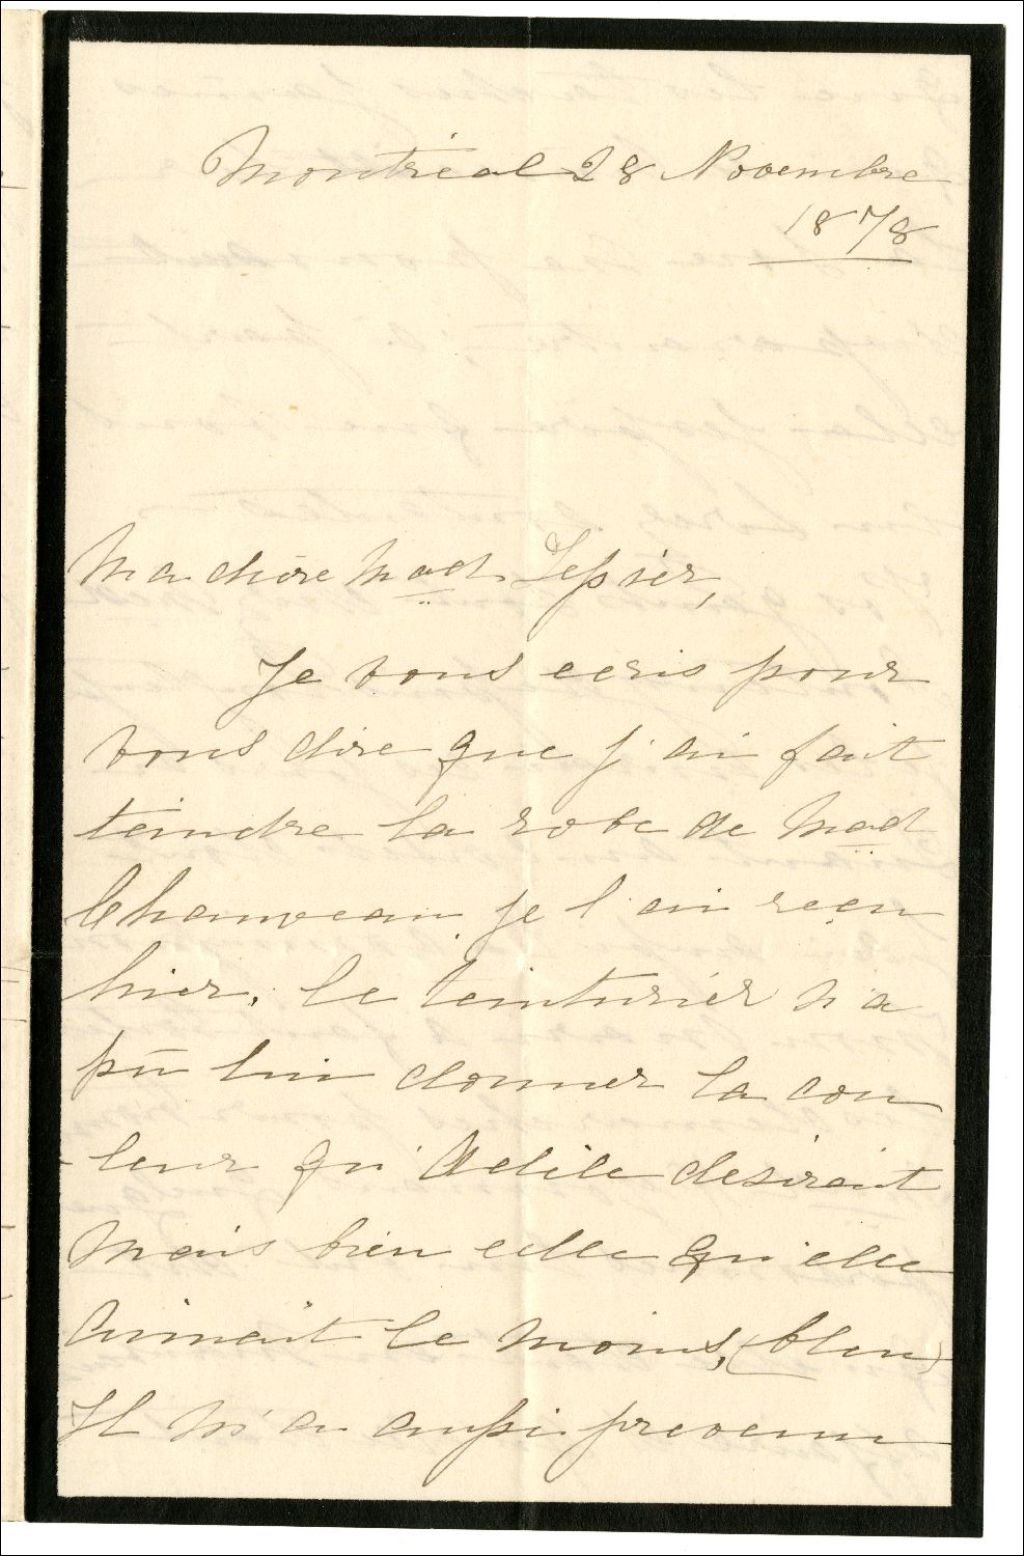 Montréal 28 Novembre
1878
Ma chère Mad. Tessier,
Je vous ecris pour
vous dire que j'ai fait
teindre la robe de Mad
Chauveau je l'ai reçu
hier. le teinturier n'a
pû lui donner la cou
-leur qu'Adèle desirait
Mais bien celle qu'elle
aimait le moins, (bleu)
Il m'a aussi prevenu